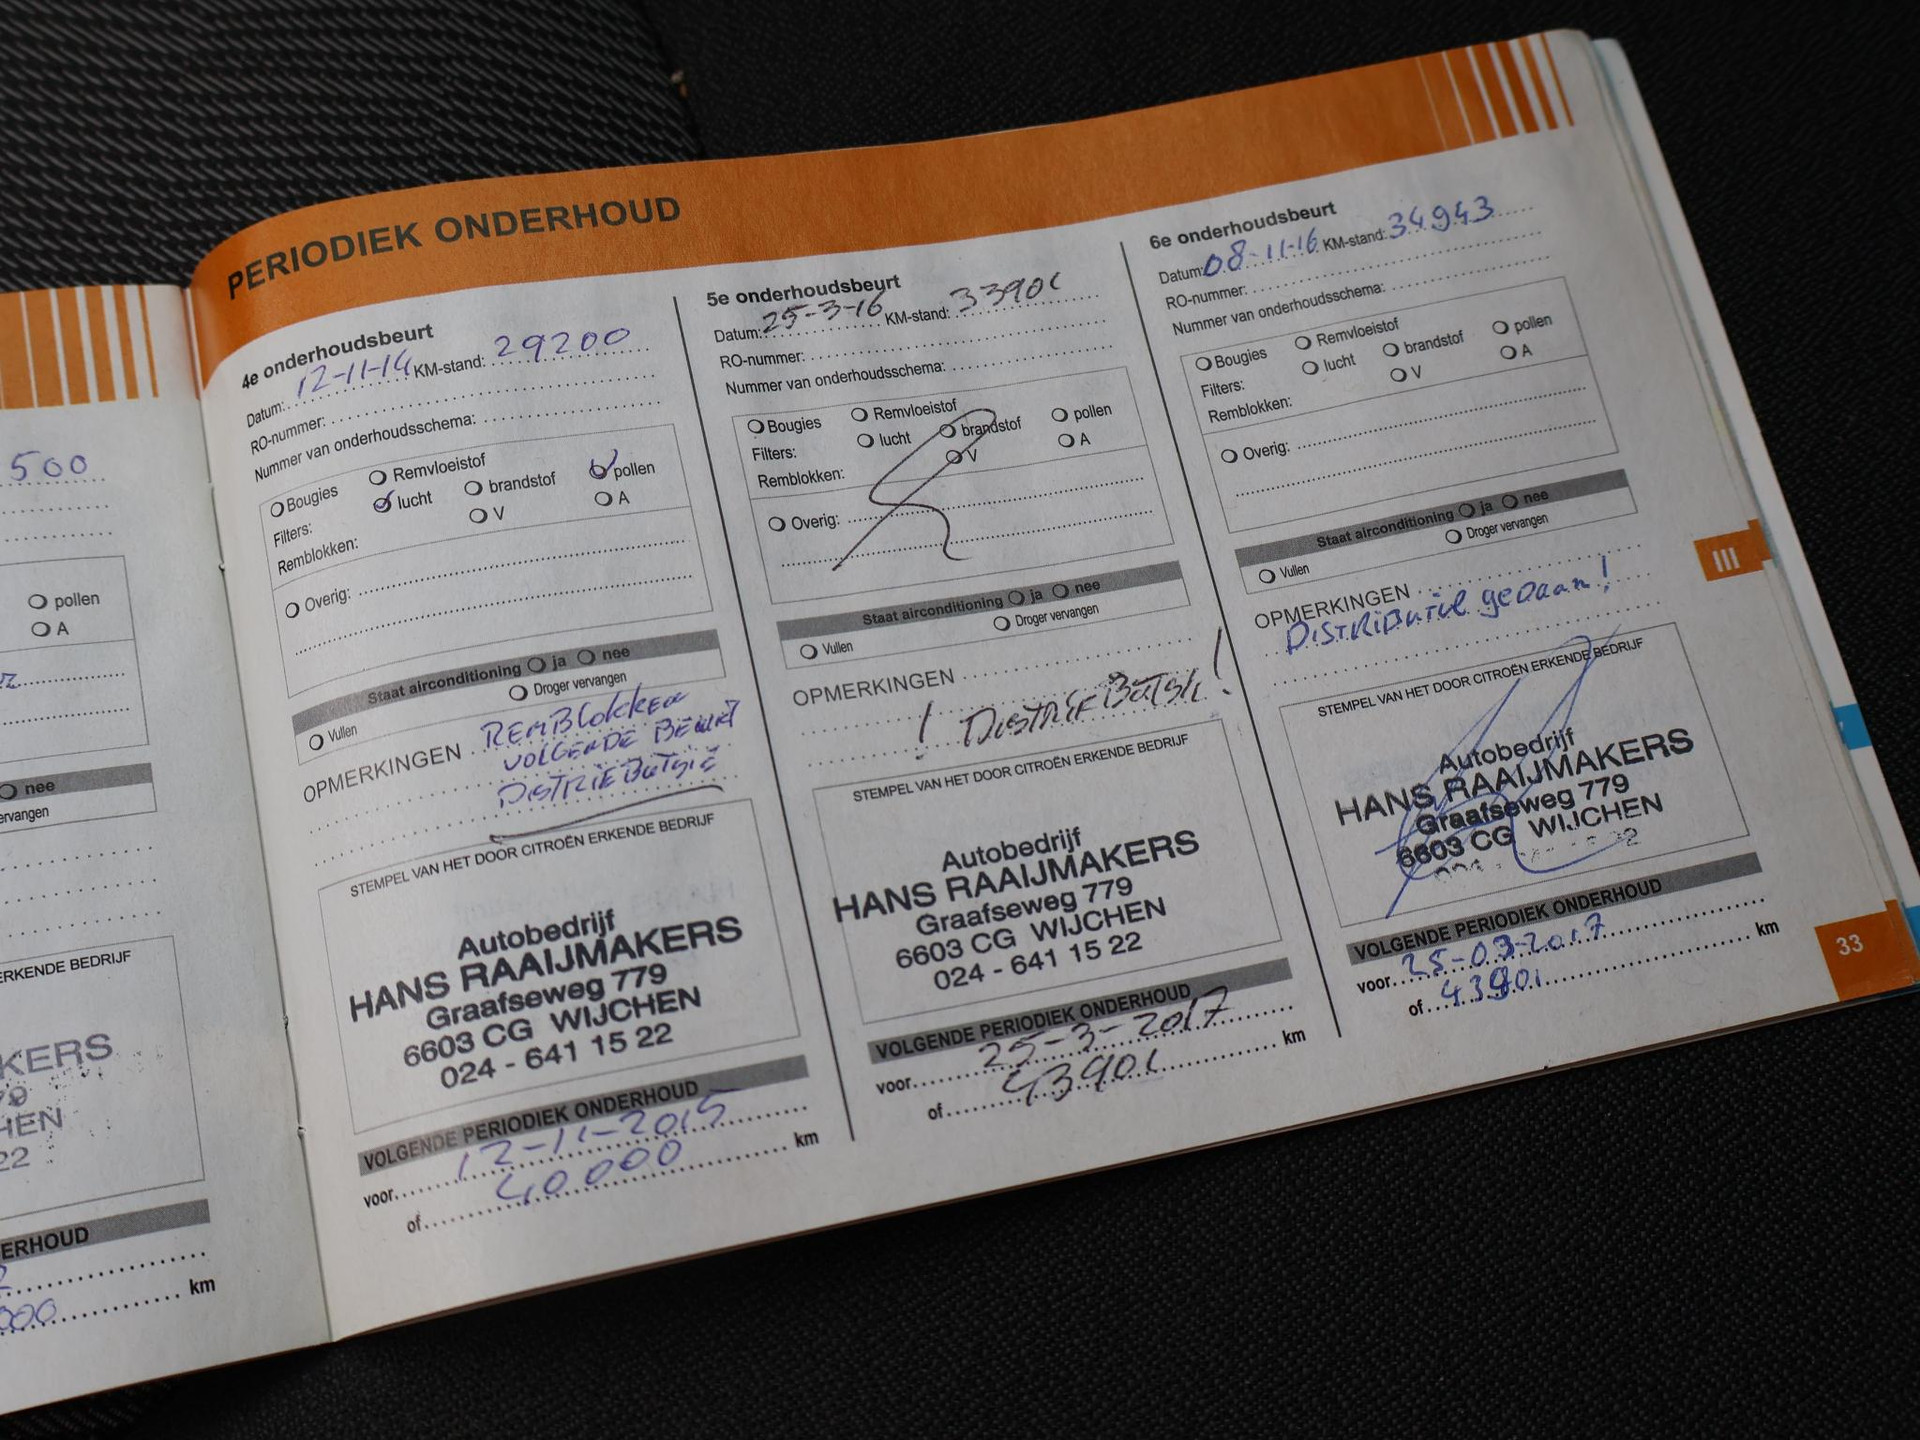 500
pollen
A
nee
ervangen
ERKENDE BEDRIJF
KERS
79
HEN
22
ERHOUD
000
km
PERIODIEK ONDERHOUD
4e onderhoudsbeurt
Datum: 12-11-14 KM-stand: 29200
RO-nummer:
Nummer van onderhoudsschema:
Bougies Remvloeistof
Filters: lucht brandstof pollen
Remblokken: V A
Overig:
Staat airconditioning ja nee
Vullen Droger vervangen
OPMERKINGEN REMBlokken
VOLGENDE BEURT
DISTRIEBUTSIE
STEMPEL VAN HET DOOR CITROËN ERKENDE BEDRIJF
Autobedrijf
HANS RAAIJMAKERS
Graafseweg 779
6603 CG WIJCHEN
024 - 641 15 22
VOLGENDE PERIODIEK ONDERHOUD
voor 12-11-2015
of 40000 km
5e onderhoudsbeurt
Datum: 25-3-16 KM-stand: 33901
RO-nummer:
Nummer van onderhoudsschema:
Bougies Remvloeistof
Filters: lucht brandstof pollen
Remblokken: V A
Overig:
Staat airconditioning ja nee
Vullen Droger vervangen
OPMERKINGEN
! !
STEMPEL VAN HET DOOR CITROËN ERKENDE BEDRIJF
Autobedrijf
HANS RAAIJMAKERS
Graafseweg 779
6603 CG WIJCHEN
024 - 641 15 22
VOLGENDE PERIODIEK ONDERHOUD
voor 25-3-2017
of 43901 km
6e onderhoudsbeurt
Datum: 08-11-16 KM-stand: 34943
RO-nummer:
Nummer van onderhoudsschema:
Bougies Remvloeistof
Filters: lucht brandstof pollen
Remblokken: V A
Overig:
Staat airconditioning ja nee
Vullen Droger vervangen
OPMERKINGEN
DISTRIBUTIE gedaan!
STEMPEL VAN HET DOOR CITROËN ERKENDE BEDRIJF
Autobedrijf
HANS RAAIJMAKERS
Graafseweg 779
6603 CG WIJCHEN
VOLGENDE PERIODIEK ONDERHOUD
voor 25-03-2017
of 43901 km
III
33